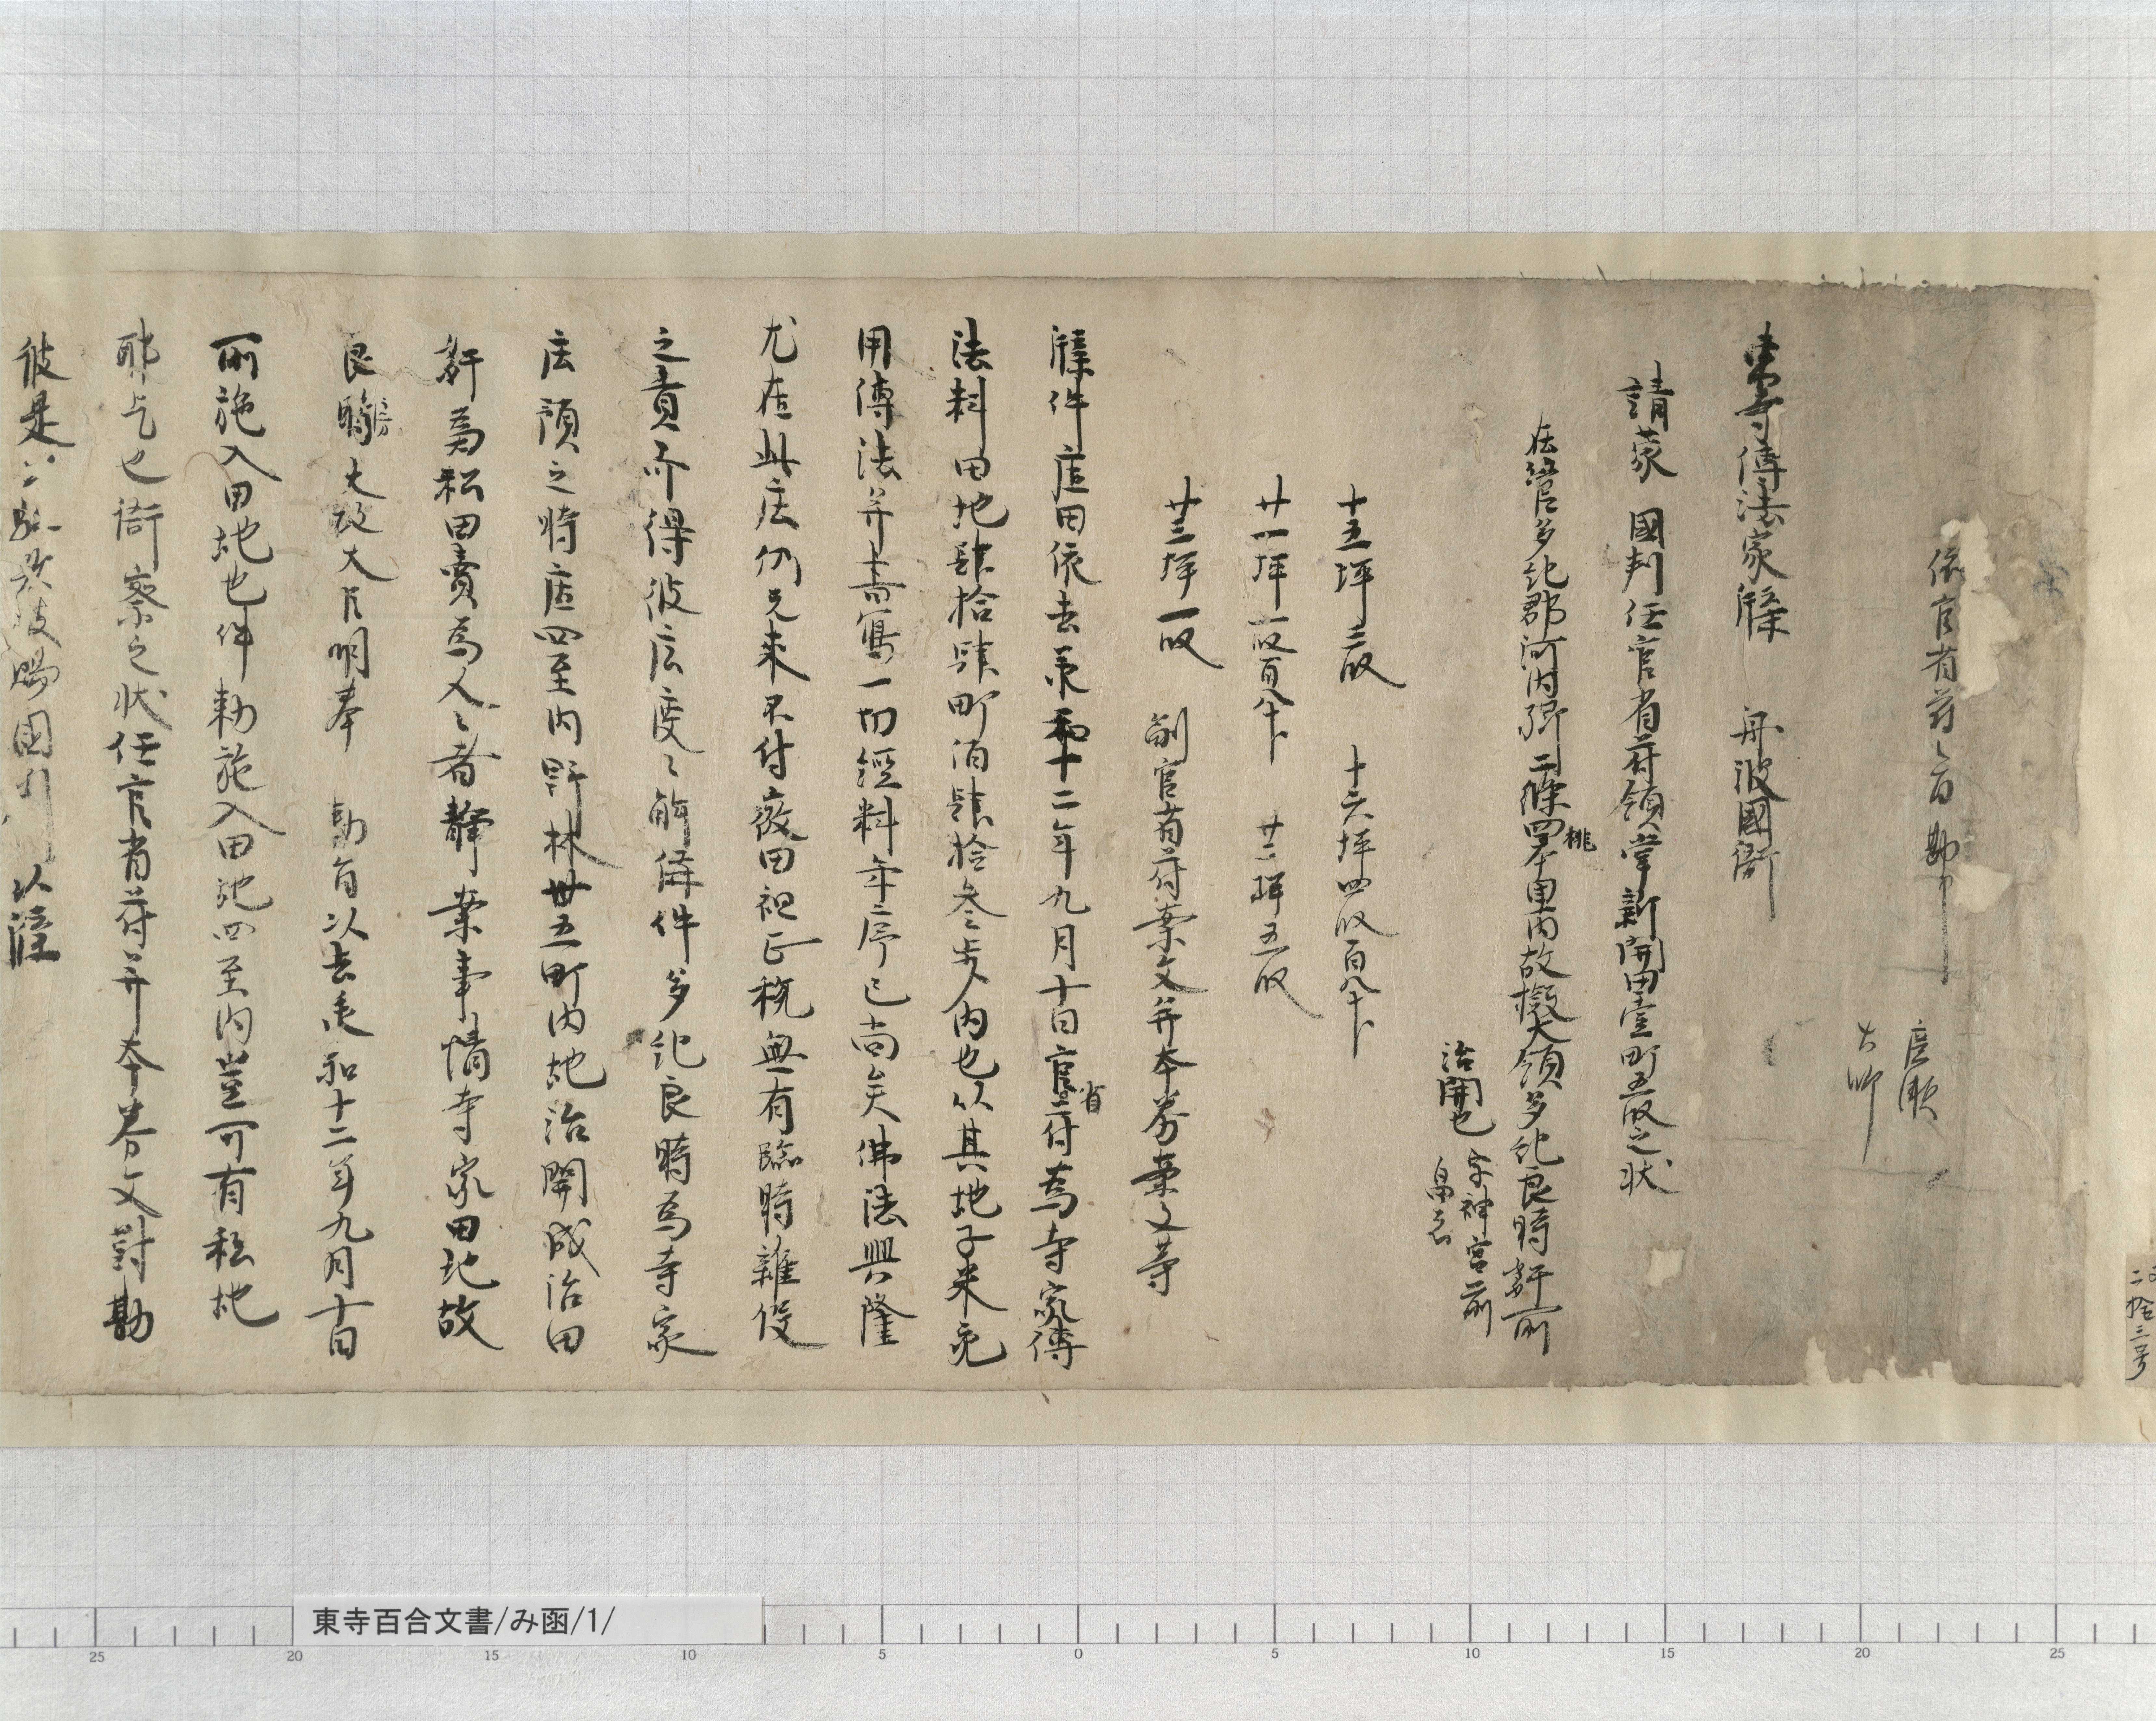 依官省符之旨勘
東寺傳法家牒　丹波國衙
請蒙　國判任官省符領掌新開田壹町五段之状
在管多紀郡河内郷二條四桃本里内故擬大領多紀良時姧所
治開也　字神宮前
十五坪二段　十六坪四段百八十卜
廿一坪一段百八十卜　廿二坪五段
廿三坪一段　副官省符案文并本券案文等
牒件庄田依去承和十二年九月十日官省符爲寺家傳
法料田地肆拾肆町佰肆拾叁歩内也以其地子米充
用傳法并書寫一切經料年序已尚矣佛法興隆
尤在此庄仍元来不付徴田租正税無有臨時雜役
之責而得彼庄庄々解偁件多紀良時爲寺家
庄預之時庄四至内野林卅五町内地治開成治田
姧爲私田賣爲人々者静案事情寺家田地故
良房大政大臣明奉　勅旨以去承和十二年九月十日
所施入田地也件勅施入田地四至内豈可有私地
耶乞也衙察之状任官省符并本券文對勘
彼是
東寺百合文書/み函/1/
25 20 15 10 5 0 5 10 15 20 25